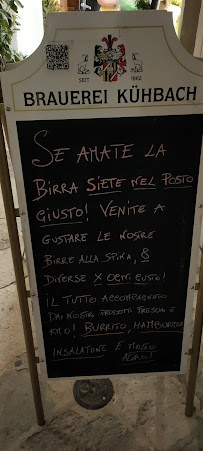 SEIT 1862
BRAUEREI KÜHBACH
SE AMATE LA
BIRRA SIETE NEL POSTO
GIUSTO! VENITE A
GUSTARE LE NOSTRE
BIRRE ALLA SPINA, 8
DIVERSE X OGNI GUSTO!
IL TUTTO ACCOMPAGNATO
DAI NOSTRI PRODOTTI FRESCHI E
KM0! BURRITO, HAMBURGER
INSALATONE E MOLTO
ALTRO!